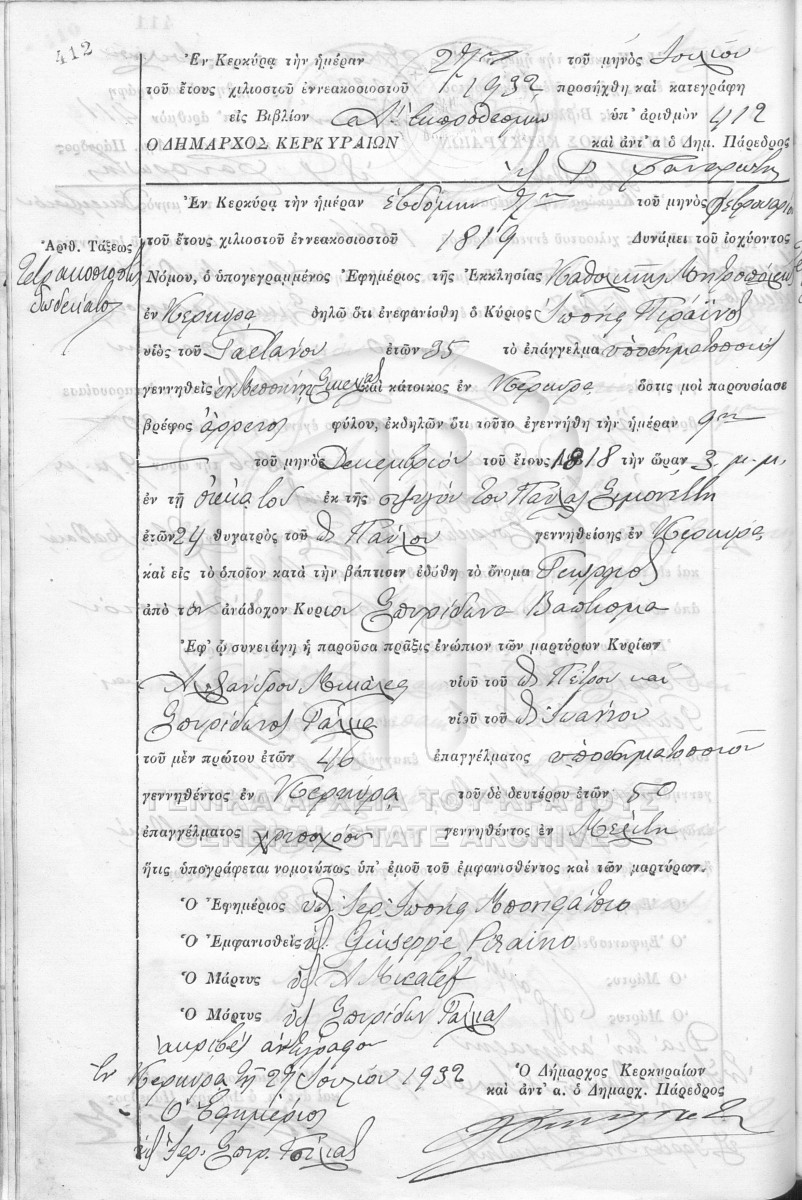 412
Ἐν Κερκύρᾳ τὴν ἡμέραν 27ην τοῦ μηνὸς Ἰουλίου
τοῦ ἔτους χιλιοστοῦ ἐννεακοσιοστοῦ 1932 προσήχθη καὶ κατεγράφη
εἰς Βιβλίον ὑπ' ἀριθμὸν 412
Ο ΔΗΜΑΡΧΟΣ ΚΕΡΚΥΡΑΙΩΝ καὶ ἀντ' α ὁ Δημ. Πάρεδρος
Ἐν Κερκύρᾳ τὴν ἡμέραν ἑβδόμην 7ην τοῦ μηνὸς Φεβρουαρίου
Ἀριθ. Τάξεως
τετρακοσιοστὸς
δωδέκατος
τοῦ ἔτους χιλιοστοῦ ἐννεακοσιοστοῦ 1819 Δυνάμει τοῦ ἰσχύοντος
Νόμου, ὁ ὑπογεγραμμένος Ἐφημέριος τῆς Ἐκκλησίας Καθολικῆς Μητροπόλεως
ἐν Κερκύρᾳ δηλῶ ὅτι ἐνεφανίσθη ὁ Κύριος Ἰωσὴφ Πιράϊνος
υἱὸς τοῦ Γαετάνου ἐτῶν 35 τὸ ἐπάγγελμα ὑποδηματοποιὸς
γεννηθεὶς ἐν Μεσσήνῃ Σικελίας καὶ κάτοικος ἐν Κέρκυρᾳ ὅστις μοι παρουσίασε
βρέφος ἄρρενος φύλου, ἐκδηλῶν ὅτι τοῦτο ἐγεννήθη τὴν ἡμέραν 9ην
— τοῦ μηνὸς Δεκεμβρίου τοῦ ἔτους 1818 τὴν ὥραν 3 μ.μ.
ἐν τῇ οἰκίᾳ του ἐκ τῆς συζύγου του Παύλας Σιμονέττη
ἐτῶν 24 θυγατρὸς τοῦ Παύλου γεννηθείσης ἐν Κέρκυρᾳ
καὶ εἰς τὸ ὁποῖον κατὰ τὴν βάπτισιν ἐδόθη τὸ ὄνομα Γεώργιος
ἀπὸ τὸν ἀνάδοχον Κύριον Σπυρίδωνα
Ἐφ' ᾧ συνετάγη ἡ παροῦσα πρᾶξις ἐνώπιον τῶν μαρτύρων Κυρίων
Ἀλεξάνδρου Μικάλεφ υἱοῦ τοῦ Πέτρου καὶ
Σπυρίδωνος υἱοῦ τοῦ Ἰωάννου
τοῦ μὲν πρώτου ἐτῶν 46 ἐπαγγέλματος ὑποδηματοποιοῦ
γεννηθέντος ἐν Κέρκυρᾳ τοῦ δὲ δευτέρου ἐτῶν 50
ΓΕΝΙΚΑ ΑΡΧΕΙΑ ΤΟΥ ΚΡΑΤΟΥΣ
ἐπαγγέλματος χρυσοχόου γεννηθέντος ἐν Μελίτῃ
GENERAL STATE ARCHIVES
ἥτις ὑπογράφεται νομοτύπως ὑπ' ἐμοῦ τοῦ ἐμφανισθέντος καὶ τῶν μαρτύρων.
Ὁ Ἐφημέριος Ἱερ. Ἰωσὴφ
Ὁ Ἐμφανισθεὶς Giuseppe Piraino
Ὁ Μάρτυς A Micalef
Ὁ Μάρτυς Σπυρίδων
ἀκριβὲς ἀντίγραφον
Ἐν Κερκύρᾳ τῇ 27 Ἰουλίου 1932
Ὁ Δήμαρχος Κερκυραίων
καὶ ἀντ' α. ὁ Δημαρχ. Πάρεδρος
Ὁ Ἐφημέριος
Ἱερ. Σπυρ.